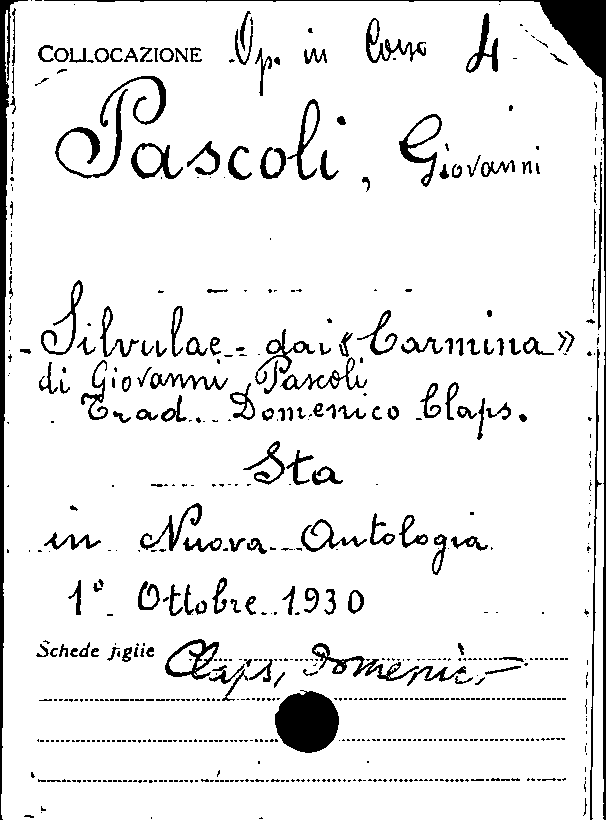 COLLOCAZIONE Op. in Corso 4
Pascoli, Giovanni
Silvulae - dai «Carmina»
di Giovanni Pascoli
Trad. Domenico Claps.
Sta
in Nuova Antologia
1° Ottobre 1930
Schede figlie Claps, Domenico